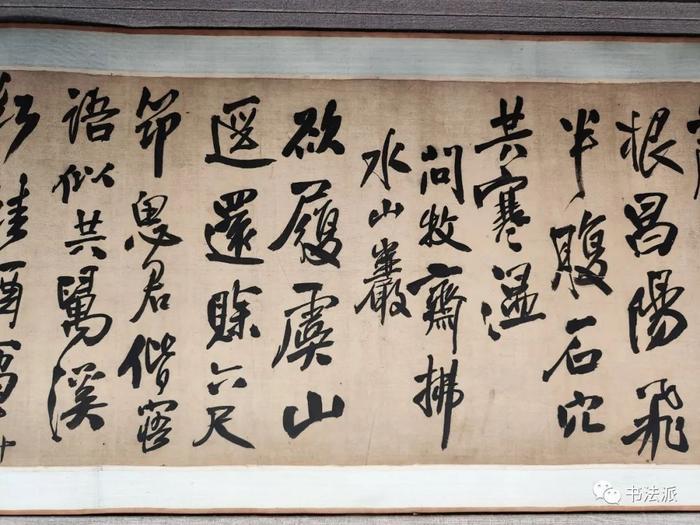 根昌陽飛
半腹石穴
共寒溫
問牧齋拂
水山巖
欲履虞山
逕還賒六尺
筇思君偕寤
語似共溪
书法派